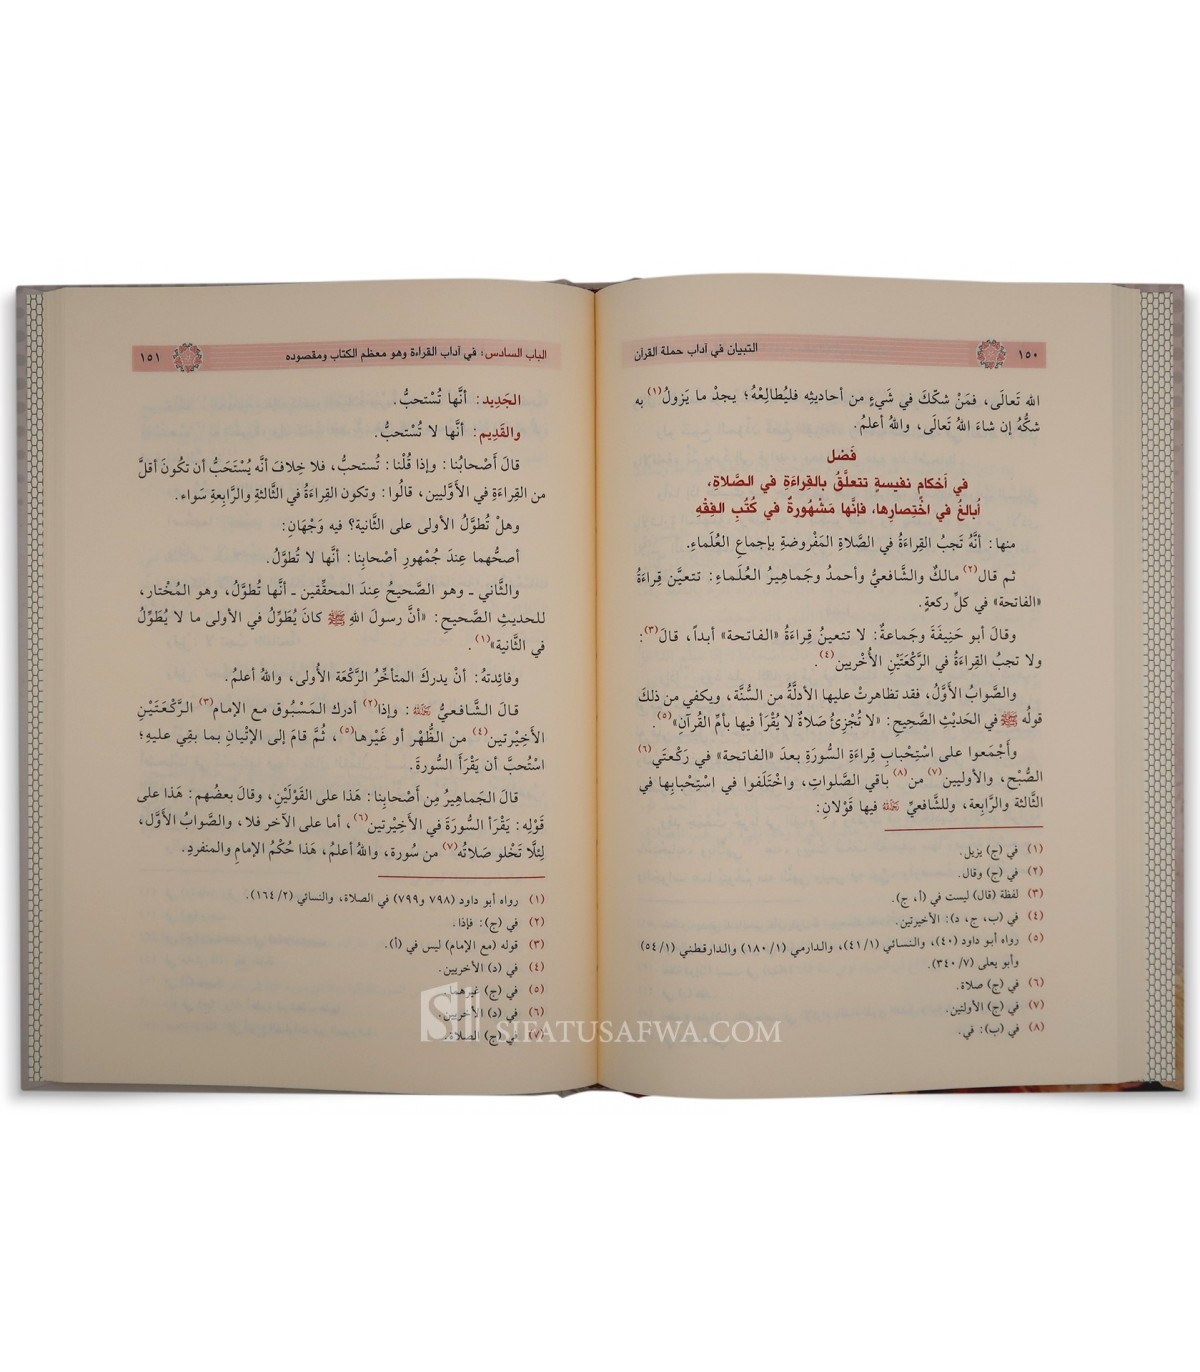 ١٥٠ التبيان في آداب حملة القرآن
الله تَعالَى، فمَنْ شكّكَ في شَيءٍ من أحاديثِه فليُطالِعْهُ؛ يجدْ ما يَزولُ(١) به
شكُّهُ إن شاءَ اللهُ تَعالَى، واللهُ أعلمُ.
فَصْل
في أحْكامٍ نفيسةٍ تتعلَّقُ بالقِراءَةِ في الصَّلاةِ،
أبالغُ في اخْتِصارِها، فإنَّها مَشْهُورةٌ في كُتُبِ الفِقْهِ
منها: أنَّهُ تَجبُ القِراءَةُ في الصَّلاةِ المَفْروضةِ بإجماعِ العُلَماءِ.
ثم قال(٢) مالكٌ والشَّافعيُّ وأحمدُ وجَماهيرُ العُلَماءِ: تتعيَّن قِراءَةُ
«الفاتحة» في كلِّ ركعةٍ.
وقالَ أبو حَنِيفَةَ وجَماعةٌ: لا تتعينُ قِراءَةُ «الفاتحة» أبداً، قالَ(٣):
ولا تجبُ القِراءَةُ في الرَّكعَتَيْنِ الأُخْريين(٤).
والصَّوابُ الأوَّلُ، فقد تظاهرتْ عليها الأدلَّةُ من السُّنَّة، ويكفي من ذلكَ
قولُه ﷺ في الحَديْثِ الصَّحِيحِ: «لا تُجْزِئُ صَلاةٌ لا يُقْرَأ فيها بأمِّ القُرآنِ»(٥).
وأَجْمَعوا على اسْتِحْبابِ قِراءَةِ السُّورَةِ بعدَ «الفاتحة» في رَكْعتَي(٦)
الصُّبْح، والأوليين(٧) من(٨) باقي الصَّلواتِ، واخْتَلَفوا في اسْتِحْبابِها في
الثَّالثة والرَّابِعة، وللشَّافعيِّ رَحِمَهُ اللَّهُ فيها قَوْلانِ:
(١) في (ج) يزيل.
(٢) في (ج) وقال.
(٣) لفظة (قال) ليست في (أ، ج).
(٤) في (ب، ج، د): الأخيرتين.
(٥) رواه أبو داود (٤٠)، والنسائي (٤١/١)، والدارمي (١٨٠/١) والدارقطني (٥٤/١)
وأبو يعلى (٣٤٠/٧).
(٦) في (ج) صلاة.
(٧) في (ج) الأولتين.
(٨) في (ب): في.
الباب السادس: في آداب القراءة وهو معظم الكتاب ومقصوده ١٥١
الجَدِيد: أنَّها تُسْتحبُّ.
والقَدِيم: أنَّها لا تُسْتحبُّ.
قالَ أصْحابُنا: وإذا قُلْنا: تُستحبُّ، فلا خِلافَ أنَّه يُسْتَحَبُّ أن تكُونَ أقلَّ
من القِراءَةِ في الأَوَّليين، قالُوا: وتكون القِراءَةُ في الثَّالثةِ والرَّابعةِ سَواء.
وهلْ تُطوَّلُ الأولى على الثَّانية؟ فيه وَجْهَانِ:
أصحُّهما عِندَ جُمْهورِ أصْحابِنا: أنَّها لا تُطوَّلُ.
والثَّاني - وهو الصَّحيحُ عِندَ المحقِّقين - أنَّها تُطوَّلُ، وهو المُخْتار،
للحديثِ الصَّحيحِ: «أنَّ رسولَ اللهِ ﷺ كانَ يُطَوِّلُ في الأولى ما لا يُطَوِّلُ
في الثَّانية»(١).
وفائِدتهُ: أنْ يدركَ المتأخِّرُ الرَّكْعَة الأُولى، واللهُ أعلمُ.
قالَ الشَّافعيُّ رَحِمَهُ اللَّهُ: وإذا(٢) أدرك المَسْبُوق مع الإمام(٣) الرَّكْعَتَيْنِ
الأَخِيْرتين(٤) من الظُّهْرِ أو غَيْرها(٥)، ثُمَّ قامَ إلى الإتْيانِ بما بقِي عليهِ؛
اسْتُحبَّ أن يَقْرَأَ السُّورةَ.
قالَ الجَماهِيرُ مِن أصْحابِنا: هَذا على القَوْلَيْنِ، وقالَ بعضُهم: هَذا على
قَوْلِه: يَقْرَأ السُّورَةَ في الأَخِيْرتين(٦)، أما على الآخر فلا، والصَّوابُ الأوَّل،
لِئلَّا تَخْلو صَلاتُه(٧) من سُورة، واللهُ أعلمُ، هَذا حُكْمُ الإمامِ والمنفردِ.
(١) رواه أبو داود (٧٩٨ و٧٩٩) في الصلاة، والنسائي (١٦٤/٢).
(٢) في (ج): فإذا.
(٣) قوله (مع الإمام) ليس في (أ).
(٤) في (د) الأخريين.
(٥) في (ج) غيرهما.
(٦) في (د) الأخريين.
(٧) في (ج) الصلاة.
SIFATUSAFWA.COM